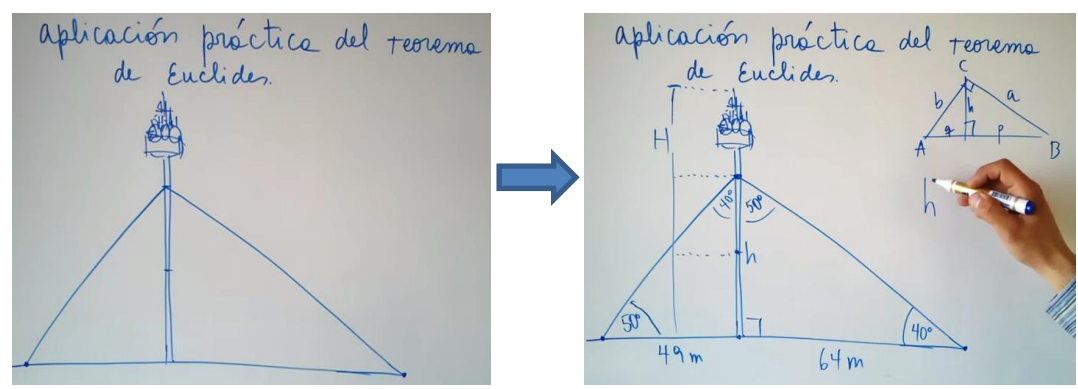 aplicación práctica del teorema
de Euclides.
aplicación práctica del teorema
de Euclides.
C
b
a
h
q
p
A
B
H
40°
50°
h
h
50°
40°
49 m
64 m